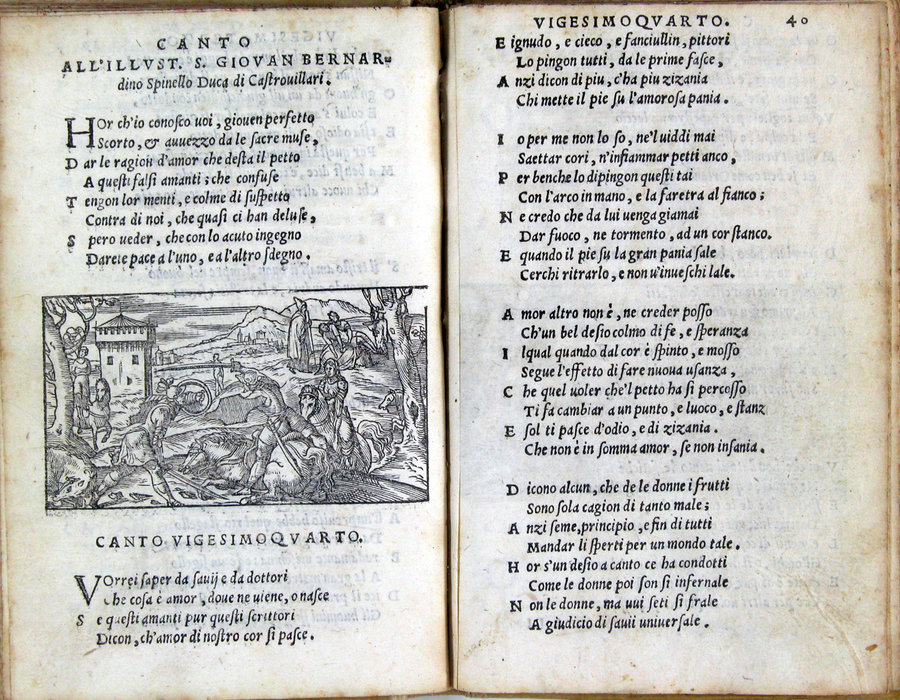 CANTO
ALL'ILLVST. S. GIOVAN BERNAR-
dino Spinello Duca di Castrouillari.
HOr ch'io conosco uoi, giouen perfetto
Scorto, & auuezzo da le sacre muse,
Dar le ragion d'amor che desta il petto
A questi falsi amanti; che confuse
Tengon lor menti, e colme di suspetto
Contra di noi, che quasi ci han deluse,
Spero ueder, che con lo acuto ingegno
Darete pace a l'uno, e a l'altro sdegno.
CANTO VIGESIMOQVARTO.
VOrrei saper da sauij e da dottori
che cosa è amor, doue ne uiene, o nasce
Se questi amanti pur questi scrittori
Dicon, ch'amor di nostro cor si pasce.
VIGESIMOQVARTO. 40
E ignudo, e cieco, e fanciullin, pittori
Lo pingon tutti, da le prime fasce,
Anzi dicon di piu, c'ha piu zizania
Chi mette il pie su l'amorosa pania.
Io per me non lo so, ne'l uiddi mai
Saettar cori, n'infiammar petti anco,
Per benche lo dipingon questi tai
Con l'arco in mano, e la faretra al fianco;
Ne credo che da lui uenga giamai
Dar fuoco, ne tormento, ad un cor stanco.
E quando il pie su la gran pania sale
Cerchi ritrarlo, e non u'inueschi l'ale.
Amor altro non è, ne creder posso
Ch'un bel desio colmo di fe, e speranza
Ilqual quando dal cor è spinto, e mosso
Segue l'effetto di fare nuoua usanza,
Che quel uoler che'l petto ha si percosso
Ti fa cambiar a un punto, e luoco, e stanz
E sol ti pasce d'odio, e di zizania.
Che non è in somma amor, se non insania.
Dicono alcun, che de le donne i frutti
Sono sola cagion di tanto male;
Anzi seme, principio, e fin di tutti
Mandar li sperti per un mondo tale.
Hor s'un desio a canto ce ha condotti
Come le donne poi son si infernale
Non le donne, ma uui seti si frale
A giudicio di sauii uniuersale.